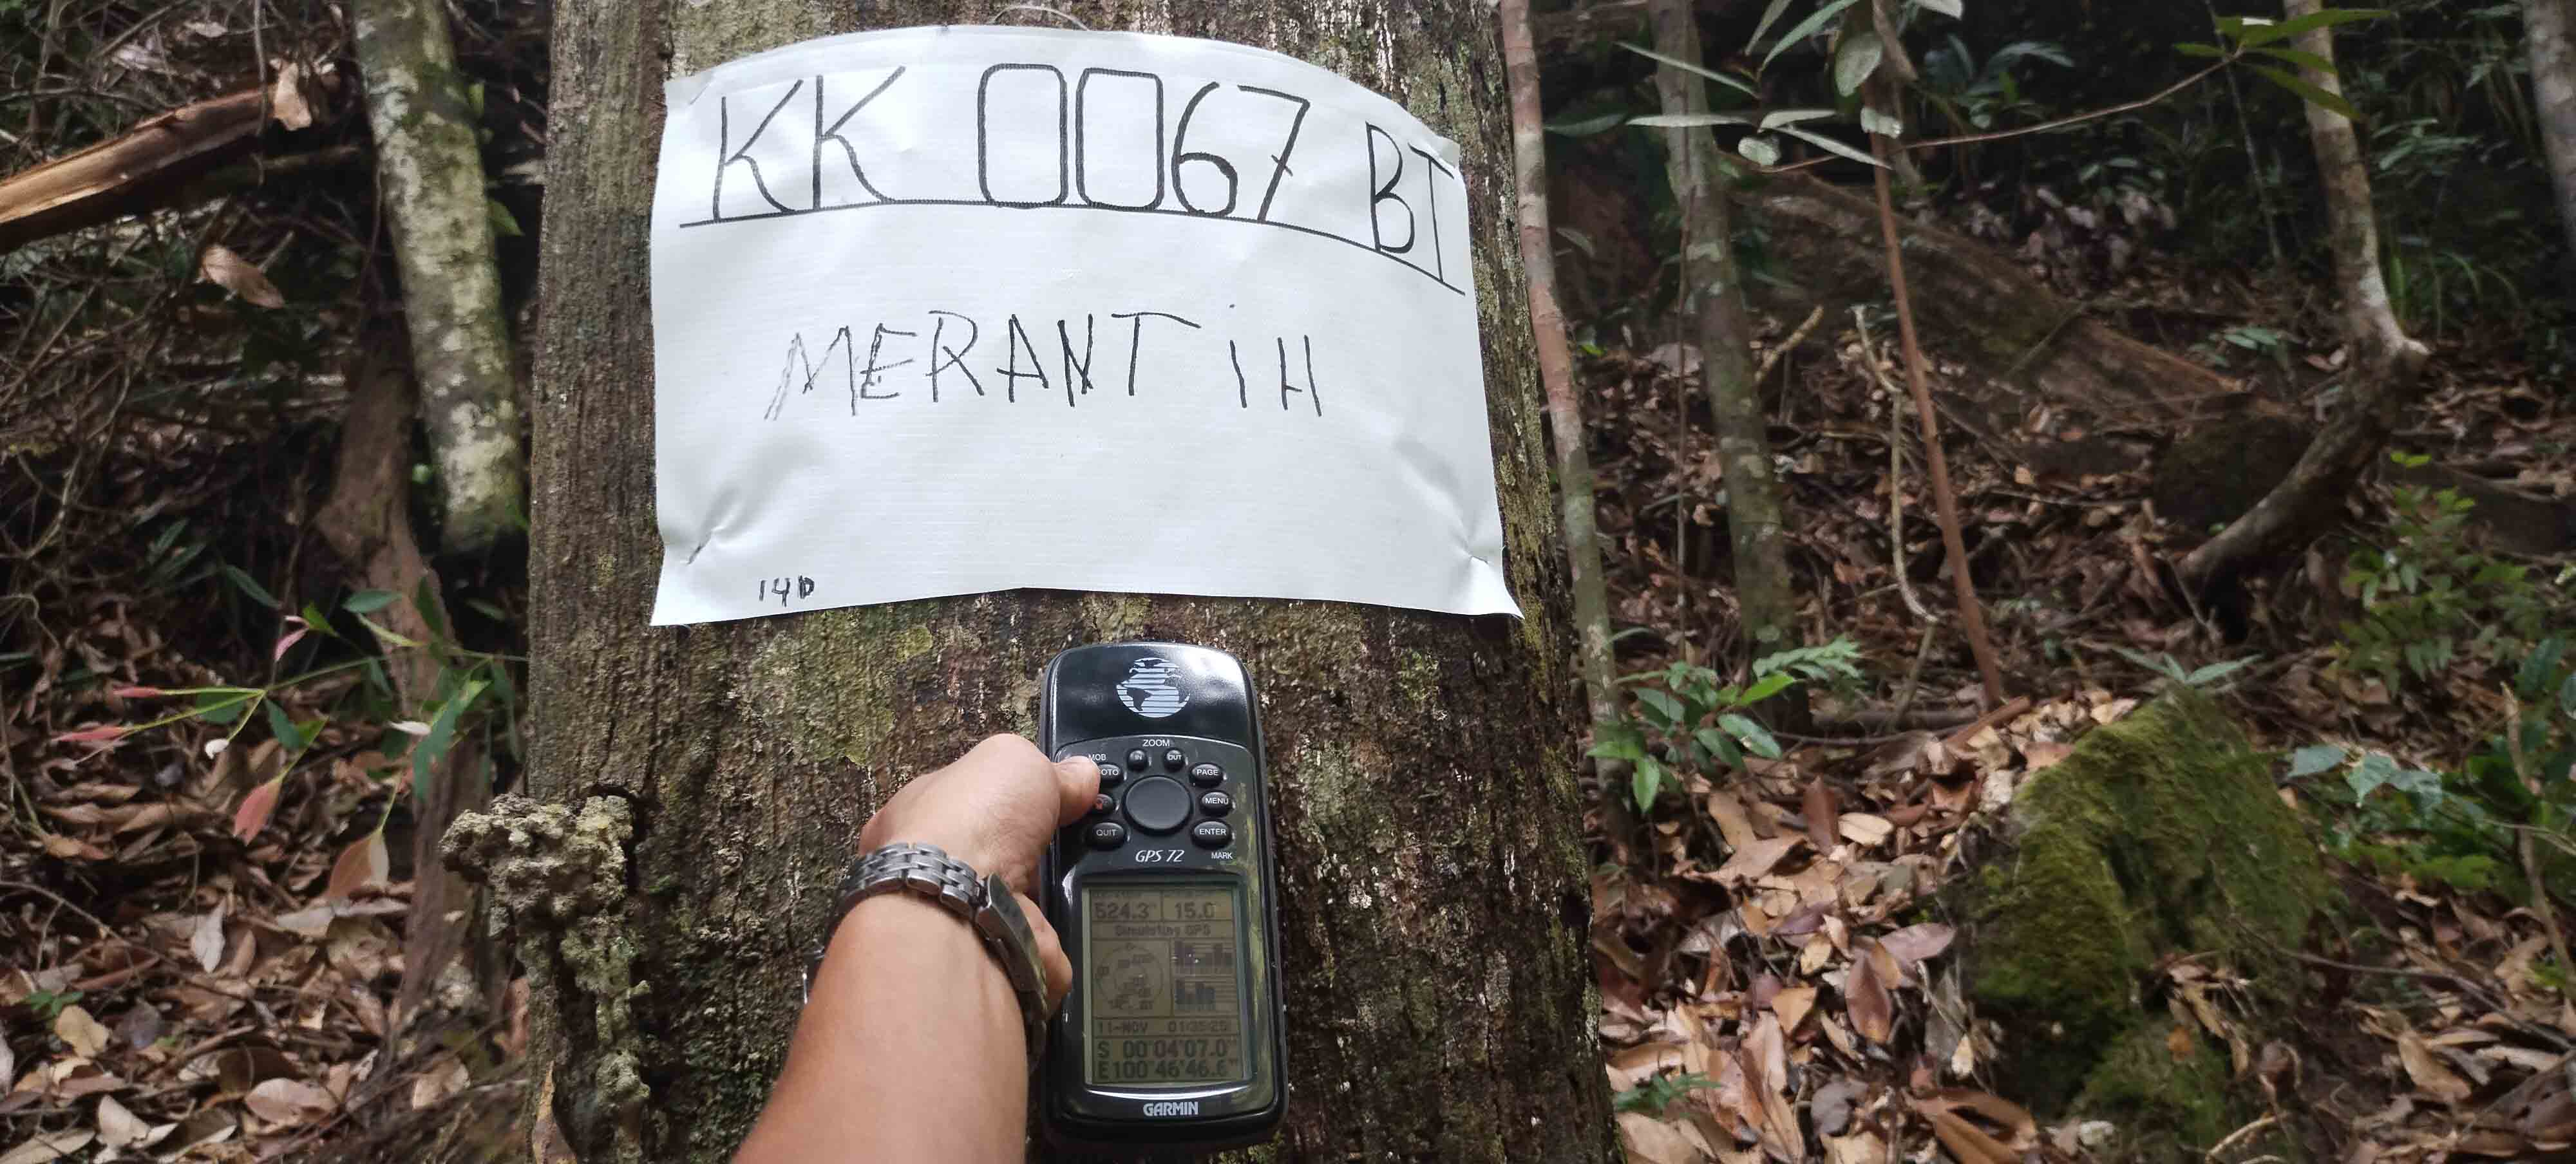 KK 0067 BT
MERANTiH
140
ZOOM
MOB IN OUT
OTO PAGE
MENU
QUIT ENTER
GPS 72 MARK
524.3 15.0
Simulating GPS
11-NOV
S 00°04'07.0"
E100°46'46.6"
GARMIN